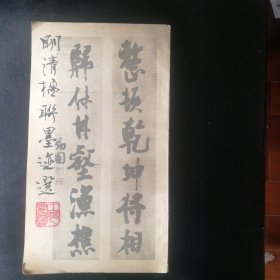 整頓乾坤將相
歸休壑漁樵
瑞圖
明清楹聯墨迹選